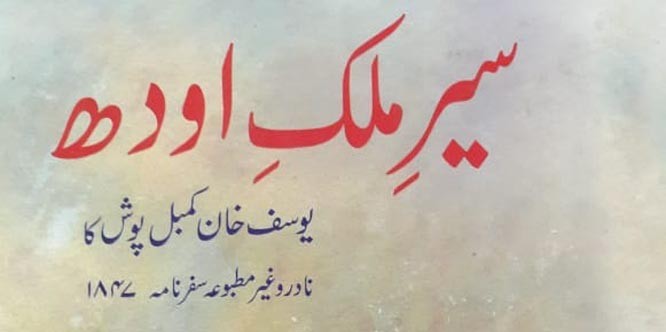 سیرِ ملکِ اودھ
یوسف خان کمبل پوش کا
نادر و غیر مطبوعہ سفر نامہ ۱۸۴۷